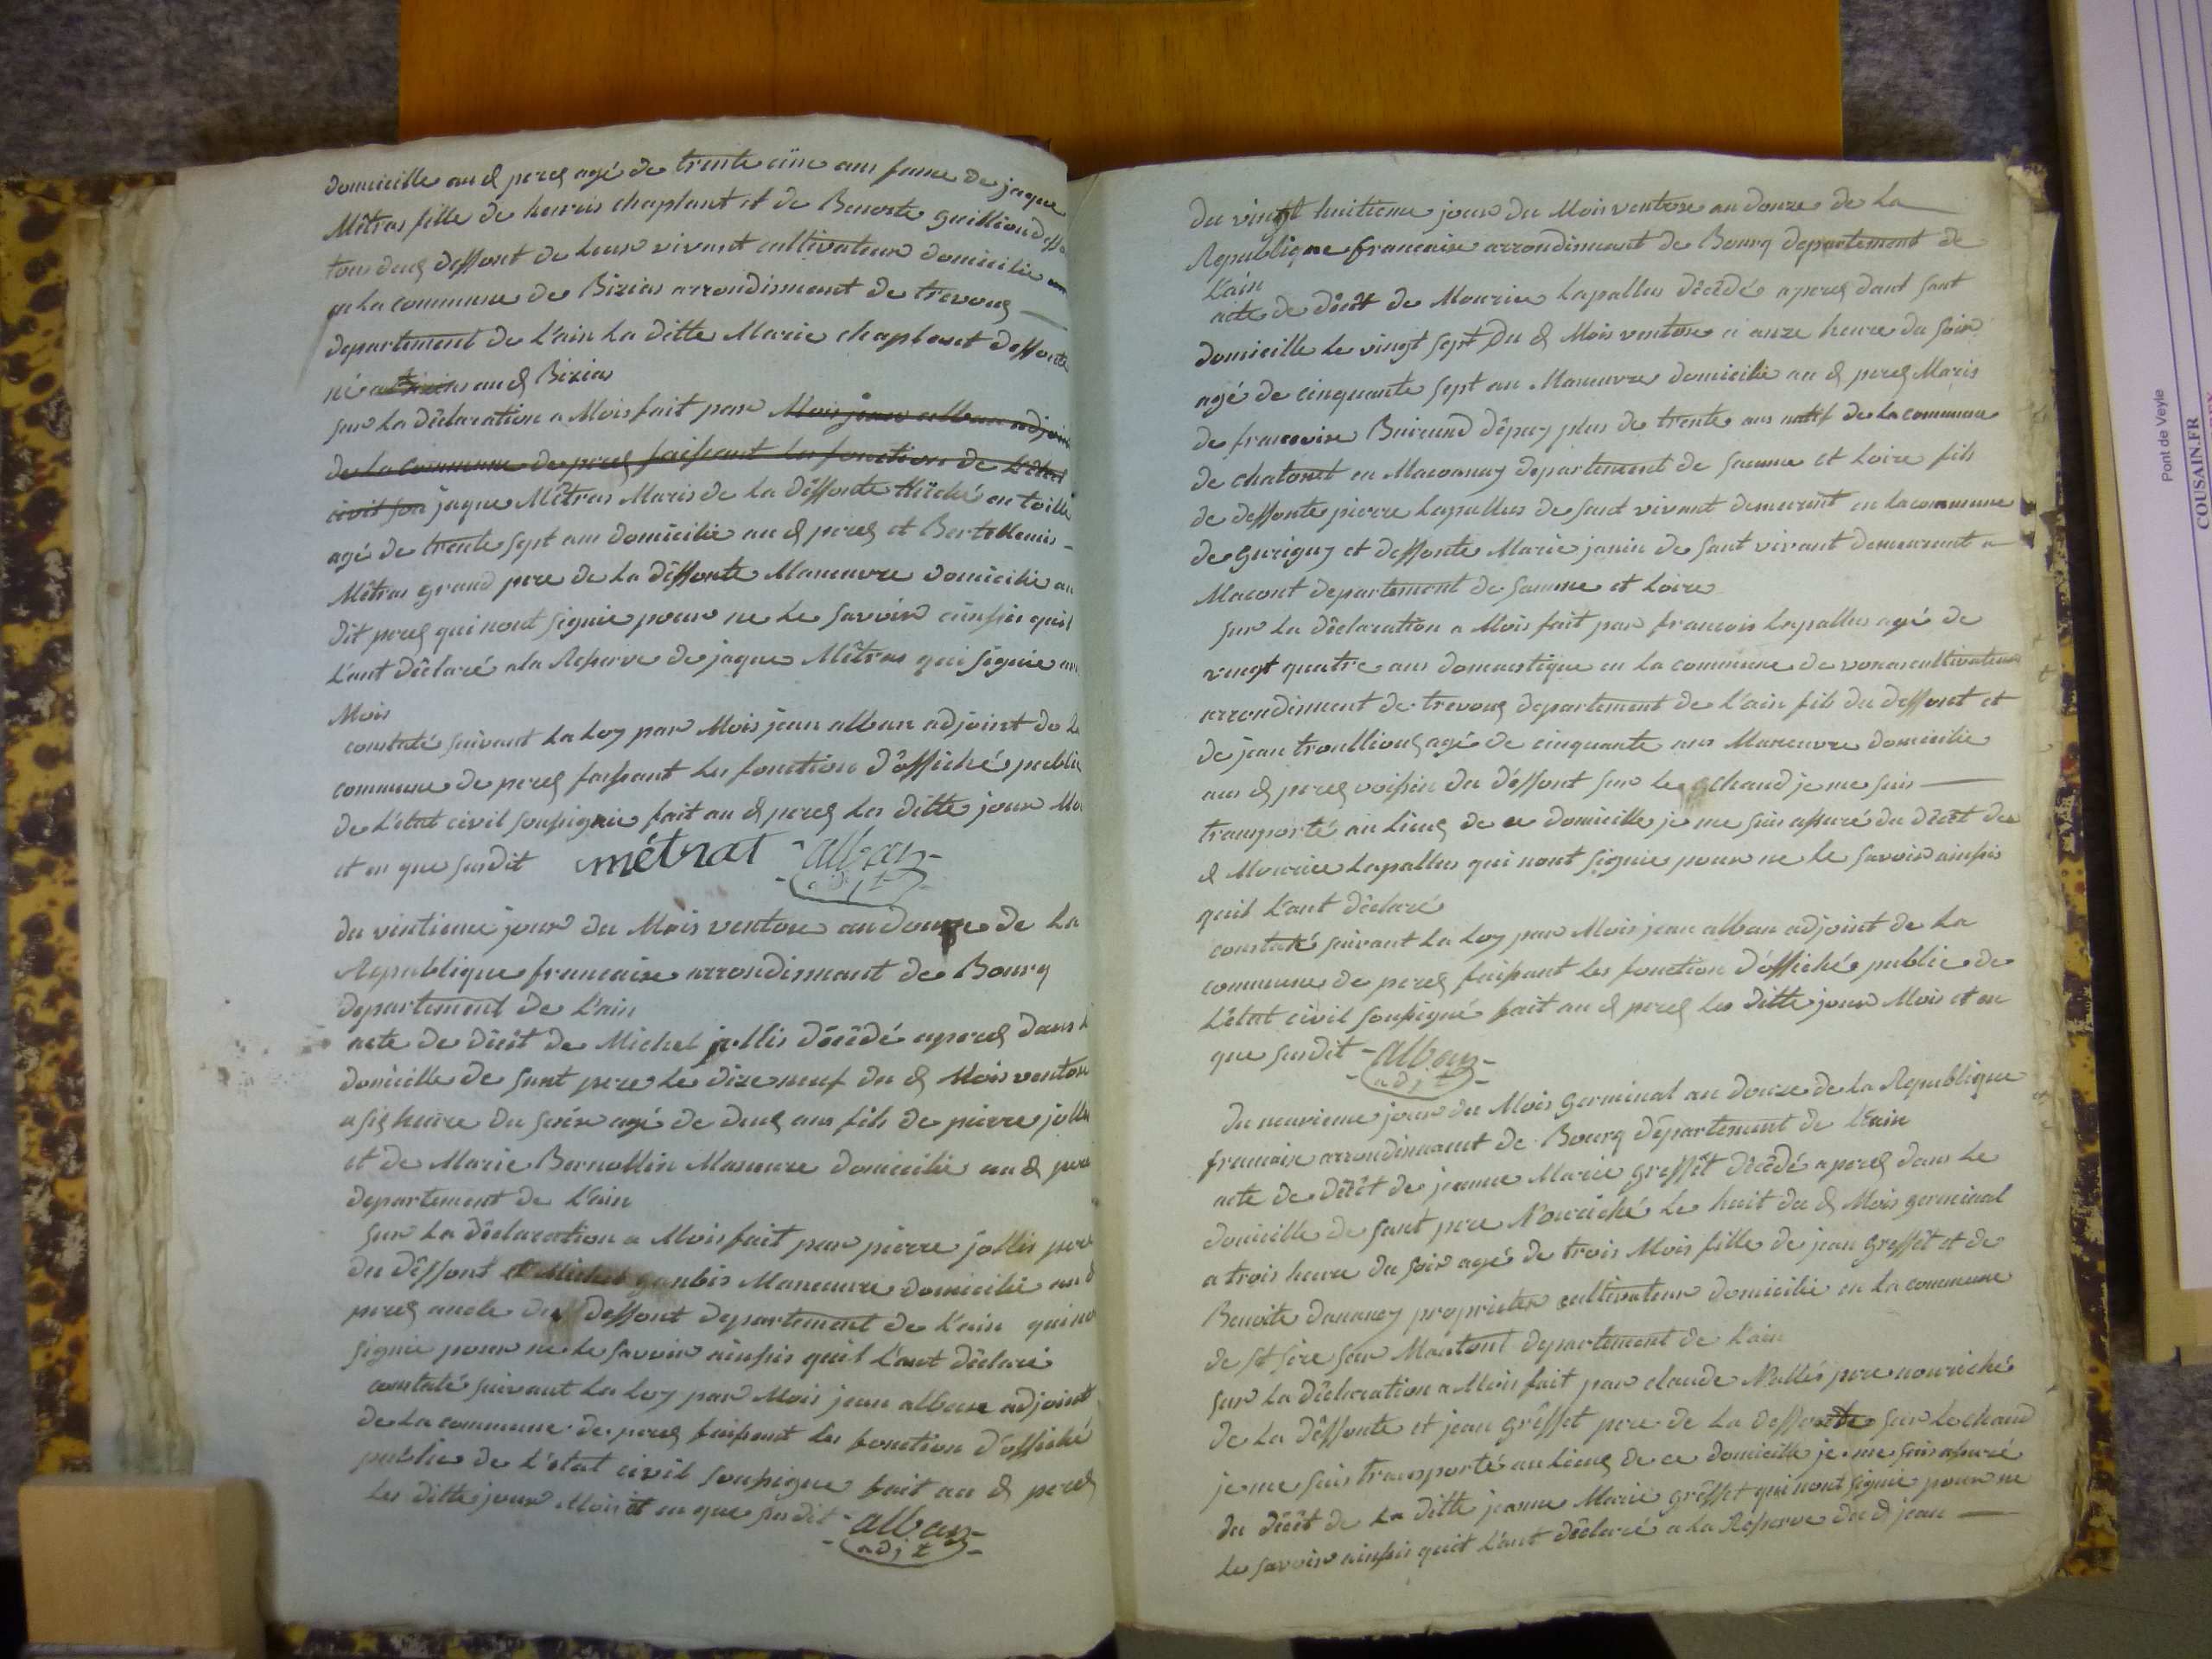 domicille au d perex agé de trente cinc ans fame de jaque
Mêtras fille de henris chaplant et de Benoite Guilliou
tous deux deffont de leur vivant cultivateur domicilie
en la commune de Bizias arrondisment de trevoux
departement de L'ain La ditte Marie chaplant deffonte
né au d Bizias
sur La dêclaration a Mois fait par Mois jean alban adjoin
de la commune de perex faissant les fonction de L'êtat
civil son jaque Mêtras Maris de La dêffonte en toille
agé de trente sept ans domicilie au d perex et Bertellemis
Mêtras grand pere de La dêffonte Maneuvre domicilie au
dit perex qui nont signie pour ne Le savoir ainssis quil
L'ant dêclaré ala Reserve de jaque Mêtras qui signie
Mois
constaté suivant La Loy par Mois jean alban adjoint de
commune de perex faissant les fonction d'officiché public
de L'êtat civil soussignie fait au d perex les ditte jour Mo
et en que susdit métrat alban
adjt
du vintieme jour du Mois ventose an douze de La
Republique francaise arrondismant de Bourg
departement de L'ain
acte de décêt de Michel jollis décêdé a perex dans
domicille de sant pere le dize neuf du d Mois ventose
a six heure du soir agé de deux ans fils de pierre jollis
et de Marie Bernollin Maneuvre domicilie au d perex
departement de L'ain
sur La dêclaration a Mois fait par pierre jollis pere
du dêffont et Michel Maneuvre domicilie au d
perex oncle du deffont departement de L'ain qui no
signie pour ne le savoir ainssis quil L'ant dêclaré
constaté suivant La Loy par Mois jean alban adjoint
de La commune de perex faissant les fonction d'officiché
public de L'êtat civil soussigne fait au d perex
les ditte jour Mois et en que susdit alban
adjt
du vingt huitieme jour du Mois ventose an douze de La
Republique francaise arrondismant de Bourg departement de
L'ain
acte de décêt de Mourice Lapallus décêdé a perex dant sant
domicille le vingt sept du d Mois ventose a anze heure du soir
agé de cinquante sept an Maneuvre domicilie au d perex Maris
de francoise Buirand dêpuy plus de trente ans natif de La commune
de chatonet en Maconnay departement de saunne et Loire fils
de deffonte pierre Lapallus de sant vivant demeurant en La commune
de guriguy et deffonte Marie janin de sant vivant demeurant a
Macont departement de saunne et Loire
sur La dêclaration a Mois fait par francois Lapallus agé de
vingt quatre ans domaestique en La commune de vonas cultivateur
arrondisment de trevoux departement de L'ain fils du deffont et
de jean troullioux agé de cinquante ans Maneuvre domicilie
au d perex voissin du dêffont sur le chand je me suis
transporté au Lieux de ce domicille je me suis assuré du décêt du
d Mourice Lapallus qui nont signie pour ne Le savoir ainssis
quil L'ant dêclaré
constaté suivant La Loy par Mois jean alban adjoint de La
commune de perex faissant les fonction d'officiché public de
L'êtat civil soussigné fait au d perex les ditte jour Mois et en
que susdit alban
adjt
du neuvieme jour du Mois Germinal an douze de La Republique
francaise arrondismant de Bourg département de L'ain
acte de décêt de jeanne Marie Greffêt décêdé a perex dans Le
domicille de sant pere Nouriché Le huit du d Mois germinal
a trois heure du soir agé de trois Mois fille de jean Greffêt et de
Benoite dananey proprietèr cultivateur domicilie en La commune
de st sire sur Mantont departement de L'ain
sur La dêclaration a Mois fait par claude pere nouriché
de La dêffonte et jean Grêffet pere de La deffonte sur Le chand
je me suis transporté au Lieux de ce domicille je me suis assuré
du décêt de La ditte jeanne Marie Grêffet qui nont signie pour ne
Le savoir ainssis quil L'ant dêclaré a La Reserve du d jean
Pont de Veyle
COUSAIN.FR